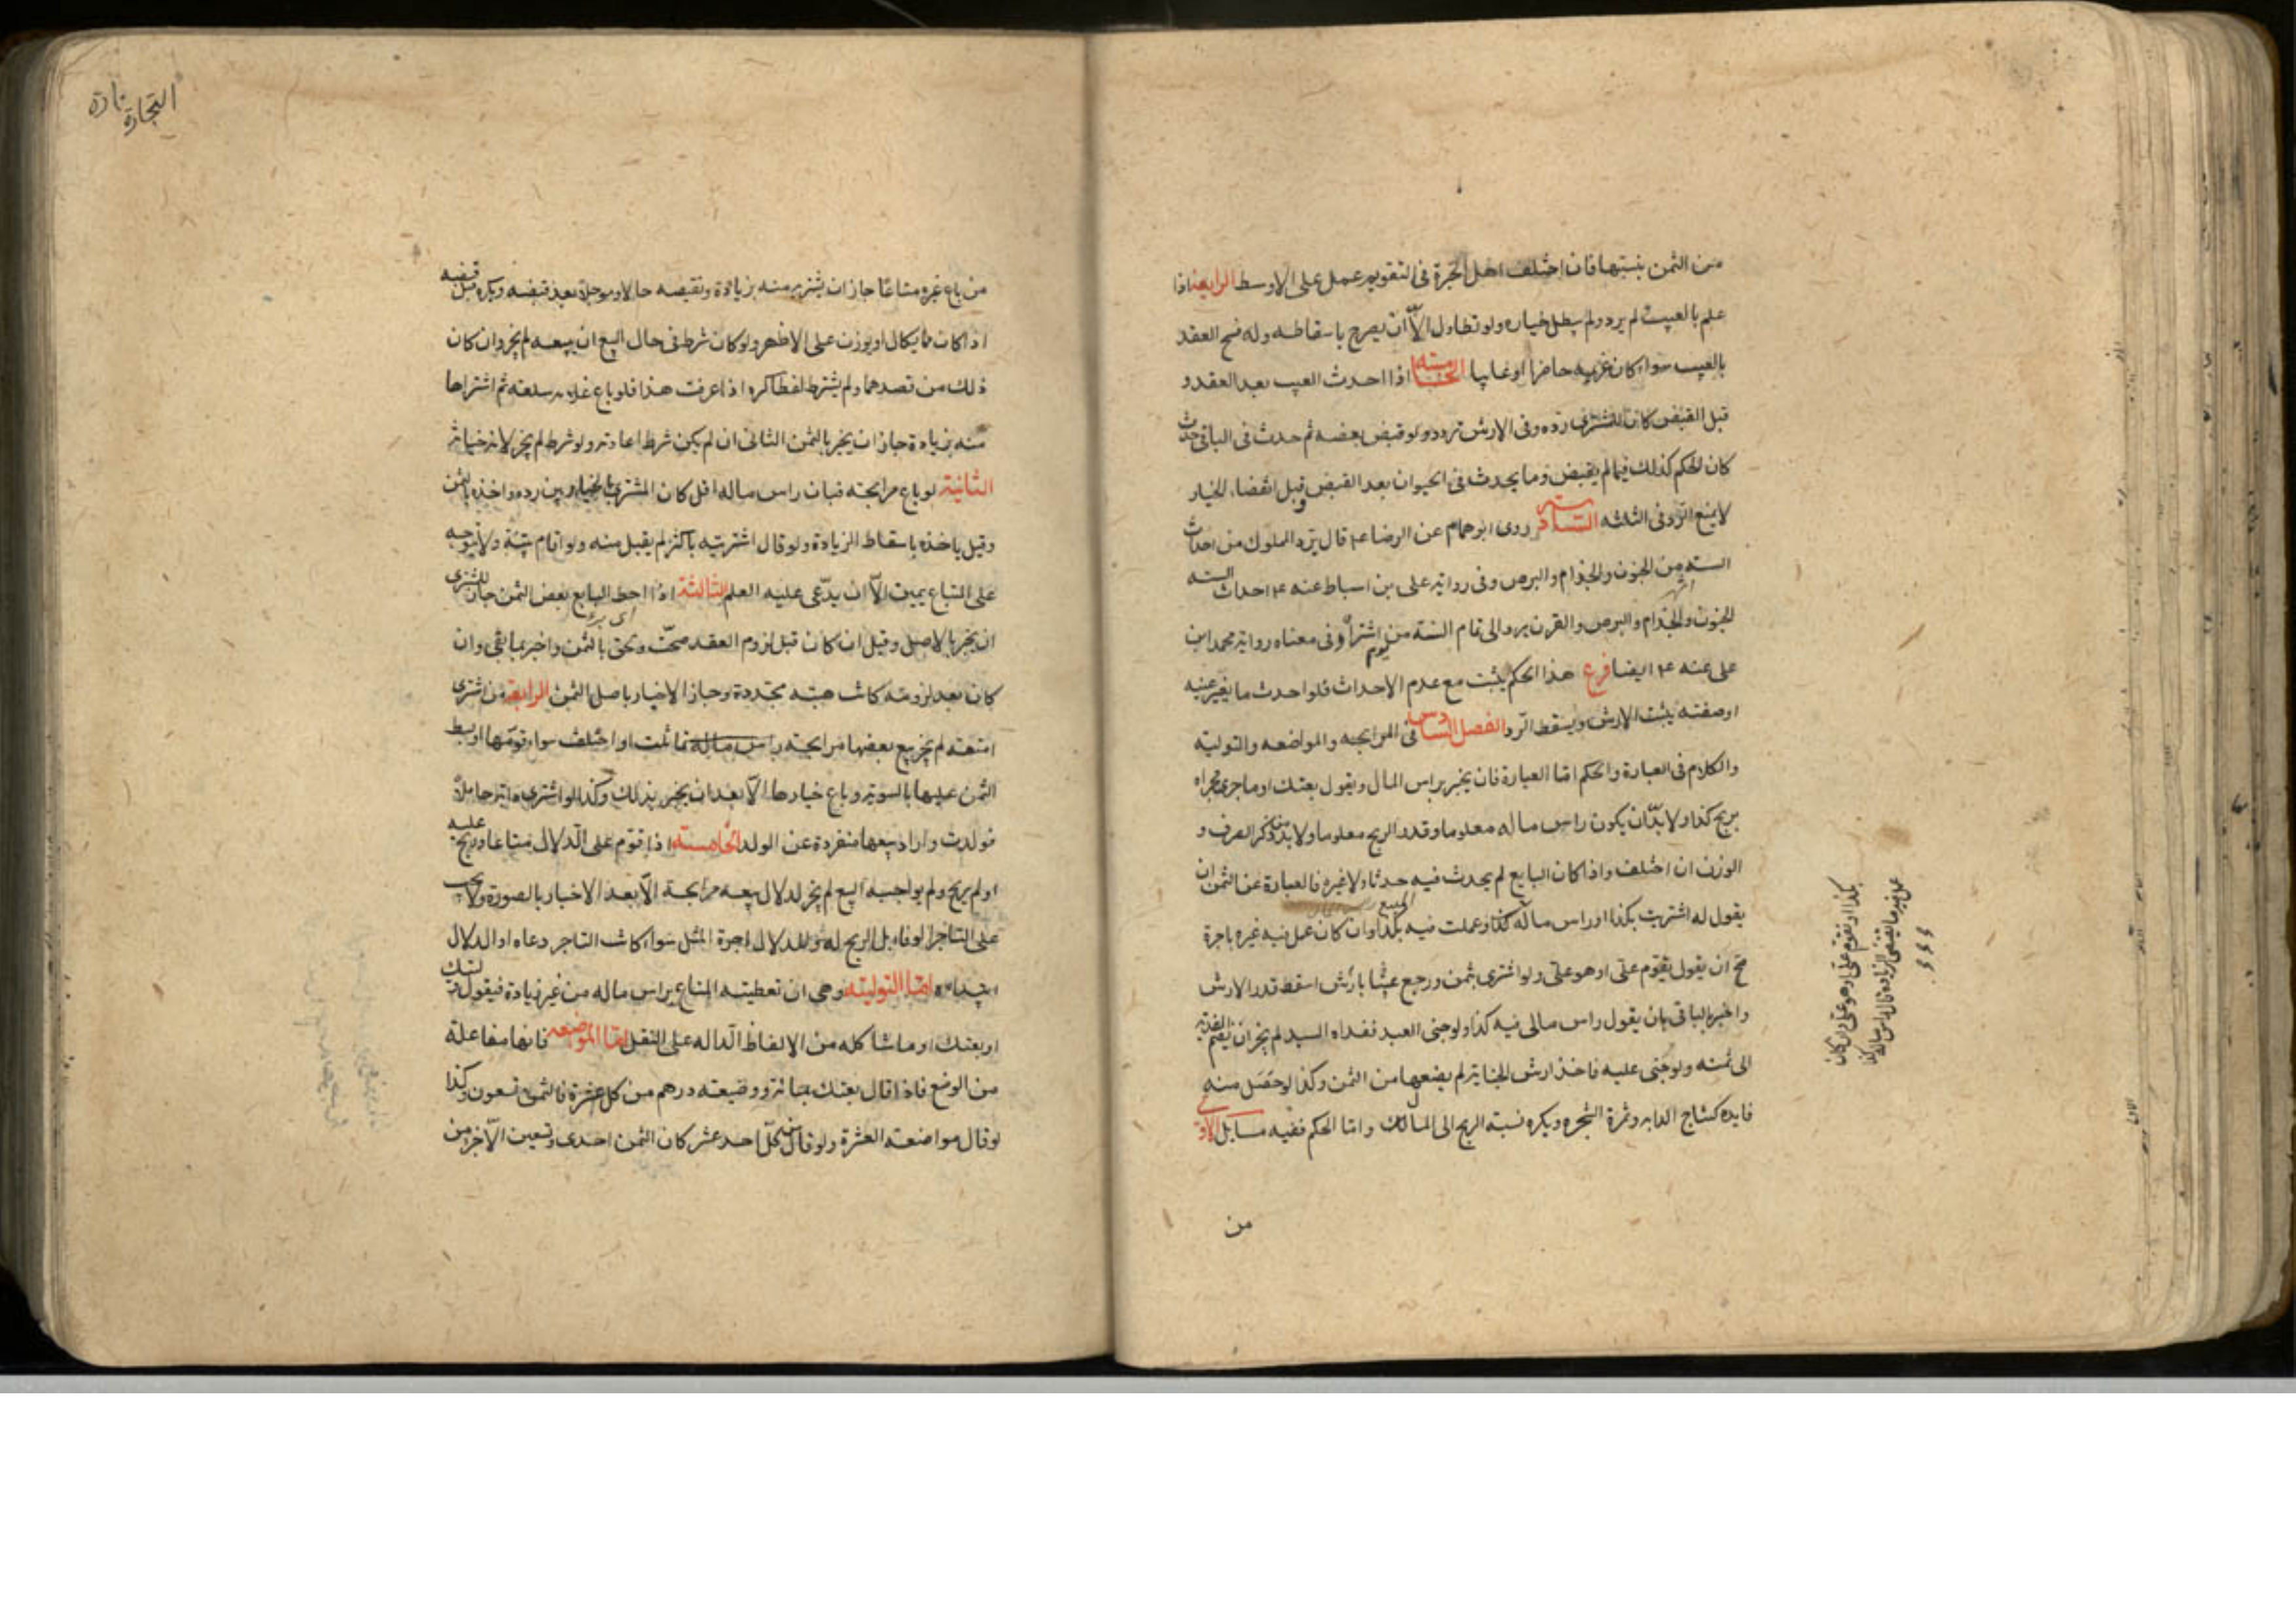 من الثمن بنسبتها فان اختلف اهل الخبرة فى التقويم عمل على الاوسط الرابعة اذا
علم بالعيب لم يرد ولم يبطل خياره ولو تطاول الا ان يصرح باسقاطه وله فسخ العقد
بالعيب سواء كان غريمه حاضرا او غايبا الخامسة اذا احدث العيب بعد العقد و
قبل القبض كان للمشترى رده وفى الارش تردد ولو قبض بعضه ثم حدث فى الباقى حدث
كان الحكم كذلك فيما لم يقبض وما يحدث فى الحيوان بعد القبض وقبل انقضاء الخيار
لا يمنع الرد فى الثلثه السادسة روى ابو همام عن الرضا ع قال يرد المملوك من احداث
السنه من الجنون والجذام والبرص وفى رواية على بن اسباط عنه ع احداث السنه
الجنون والجذام والبرص والقرن يرد الى تمام السنة من يوم اشتراه وفى معناه رواية محمد ابن
على عنه ع ايضا فرع هذا الحكم يثبت مع عدم الاحداث فلو احدث ما يغير عينه
او صفته يثبت الارش ويسقط الرد الفصل السادس فى المرابحه والمواضعه والتولية
والكلام فى العبارة والحكم اما العبارة فان يخبر براس المال ويقول بعتك او ما جرى مجراه
بربح كذا ولا بد ان يكون راس ماله معلوما وقدر الربح معلوما ولا بد من ذكر الصرف و
الوزن ان اختلف واذا كان البايع لم يحدث فيه حدثا ولا غيره فالعبارة عن الثمن ان
يقول له اشتريت بكذا او راس ماله كذا وعملت فيه بكذا وان كان عمل فيه غيره باجرة
صح ان يقول تقوم على او هو على ولو اشترى بثمن ورجع عيبها بارش اسقط قدر الارش
واخبر بالباقى بان يقول راس مالى فيه كذا ولو جنى العبد ففداه السيد لم يجز ان يضم الفدية
الى ثمنه ولو جنى عليه فاخذ ارش الجناية لم يضعها من الثمن وكذا لو حصل منه
فايده كنتاج الدابه وثمرة الشجره ويكره نسبة الربح الى المال واما الحكم ففيه مسايل الاولى
من
التجارة
من باع غيره متاعا جاز ان يشتريه منه بزيادة ونقيصه حالا وموجلا بعد قبضه ويكره قبل قبضه
اذا كان مما يكال او يوزن على الاظهر ولو كان شرط فى حال البيع ان يبيعه لم يجز وان كان
ذلك من قصدهما ولم يشترط لفظا كره اذا عرفت هذا فلو باع غلامه سلعته ثم اشتراها
منه بزيادة جاز ان يخبر بالثمن الثانى ان لم يكن شرط اعادته ولو شرط لم يجز لانه خيانة
الثانية لو باع مرابحته فبان راس ماله اقل كان المشترى بالخيار بين رده واخذه بالثمن
وقيل ياخذه باسقاط الزيادة ولو قال اشتريته باكثر لم يقبل منه ولو اقام بينة ولا يتوجه
على المتباع يمين الا ان يدعى عليه العلم الثالثة اذا حط البايع بعض الثمن جاز للمشترى
ان يخبر بالاصل وقيل ان كان قبل لزوم العقد صحت والحق بالثمن واخبر بما بقى وان
كان بعد لزومه كانت هبته مجددة وجاز الاخبار باصل الثمن الرابعة من اشترى
امتعته لم يجز بيع بعضها مرابحته راس ماله تماثلت او اختلف سواء قومها او بسط
الثمن عليها بالسويه وباع خيارها الا بعد ان يخبر بذلك وكذا لو اشترى دابة حاملا
فولدت واراد بيعها منفردة عن الولد الخامسة اذا قوم على الدلال متاعا وربح عليه
او لم يربح ولم يواجبه البيع لم يجز للدلال بيعه مرابحة الا بعد الاخبار بالصورة ولا يجب
على التاجر الوفاء بل الربح له وللدلال اجرة المثل سواء كانت التاجر دعاه او الدلال
ابتداءه اما التولية وهى ان تعطيته المتاع براس ماله من غير زيادة فيقول وليتك
او بعتك او ما شاكله من الالفاظ الداله على النقل اما المواضعه فانها مفاعلة
من الوضع فاذا قال بعتك بمائة ووضيعته درهم من كل عشرة فالثمن تسعون وكذا
لو قال مواضعته العشرة ولو قال من كل احد عشر كان الثمن احدى وتسعين الا جزء من